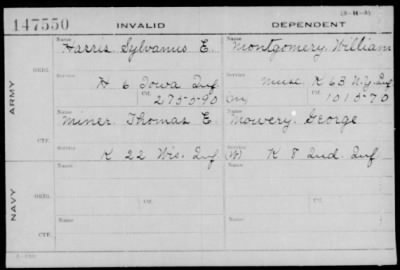 147550
INVALID
DEPENDENT
Name
Harris, Sylvanus E.
Name
Montgomery, William
ARMY
ORIG.
Service
H 6 Iowa Inf
Service
Musc. K 63 N.Y. Inf
Ctf.
275590
Ctf.
101570
Name
Miner, Thomas E.
Name
Mowery, George
CTF.
Service
K 22 Wis. Inf
Service
(W) K 8 Ind. Inf
NAVY
ORIG.
Name
Ctf.
Name
Ctf.
Service
Service
CTF.
Name
Name